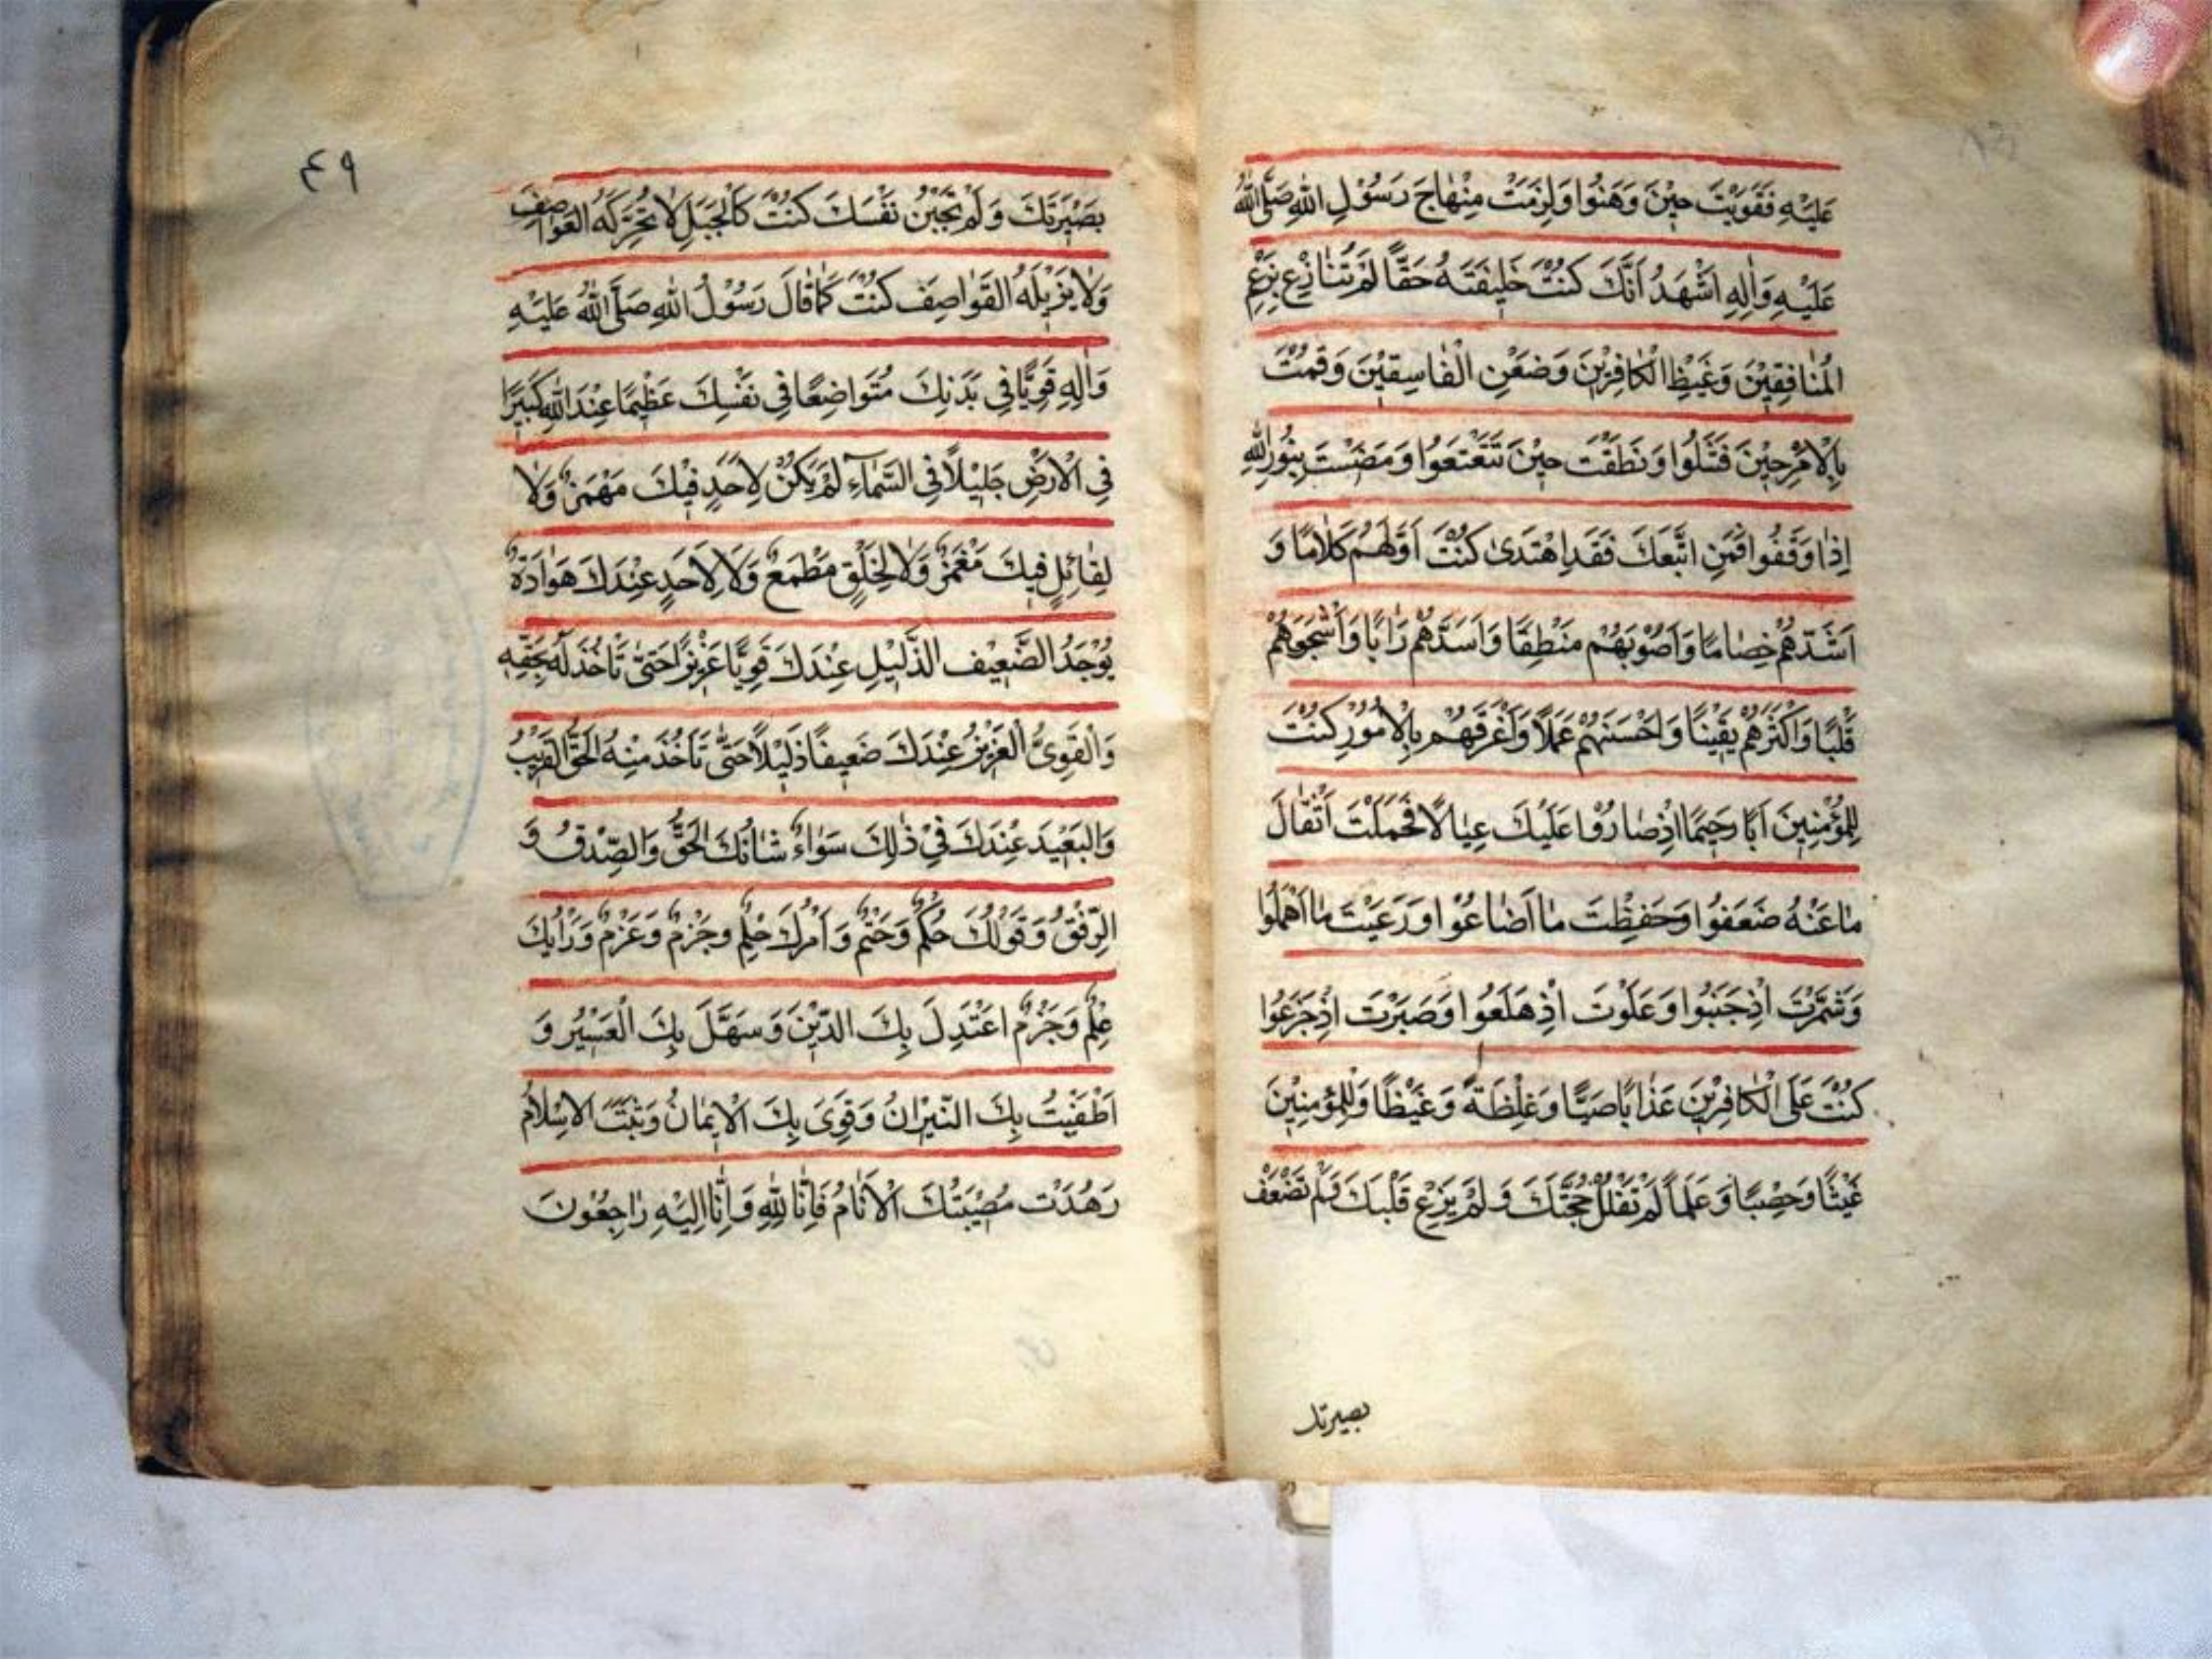 عَلَيْهِ فَقَوِيْتَ حِيْنَ وَهَنُوا وَلَزِمْتَ مِنْهَاجَ رَسُوْلِ اللهِ صَلَّى اللهُ
عَلَيْهِ وَاٰلِهِ اَشْهَدُ اَنَّكَ كُنْتَ خَلِيْفَتَهُ حَقًّا لَمْ تُنَازِعْ بِزَعْمِ
الْمُنَافِقِيْنَ وَغَيْظِ الْكَافِرِيْنَ وَضَغْنِ الْفَاسِقِيْنَ وَقُمْتَ
بِالْاَمْرِ حِيْنَ فَشَلُوا وَنَطَقْتَ حِيْنَ تَتَعْتَعُوا وَمَضَيْتَ بِنُوْرِ اللهِ
اِذَا وَقَفُوا فَمَنِ اتَّبَعَكَ فَقَدِ اهْتَدٰى كُنْتَ اَوَّلَهُمْ كَلَامًا وَ
اَشَدَّهُمْ خِصَامًا وَاَصْوَبَهُمْ مَنْطِقًا وَاَسَدَّهُمْ رَاْيًا وَاَشْجَعَهُمْ
قَلْبًا وَاَكْثَرَهُمْ يَقِيْنًا وَاَحْسَنَهُمْ عَمَلًا وَاَعْرَفَهُمْ بِالْاُمُوْرِ كُنْتَ
لِلْمُؤْمِنِيْنَ اَبًا رَحِيْمًا اِذْ صَارُوْا عَلَيْكَ عِيَالًا فَحَمَلْتَ اَثْقَالَ
مَا عَنْهُ ضَعَفُوا وَحَفِظْتَ مَا اَضَاعُوْا وَرَعَيْتَ مَا اَهْمَلُوا
وَشَمَّرْتَ اِذْ جَنَبُوا وَعَلَوْتَ اِذْ هَلَعُوا وَصَبَرْتَ اِذْ جَزَعُوا
كُنْتَ عَلَى الْكَافِرِيْنَ عَذَابًا صَبًّا وَغِلْظَةً وَغَيْظًا وَلِلْمُؤْمِنِيْنَ
غَيْثًا وَخِصْبًا وَعَلَمًا لَمْ تُفْلَلْ حُجَّتُكَ وَلَمْ يَزِغْ قَلْبُكَ وَلَمْ تَضْعُفْ
بصيرتك
٤٩
بَصِيْرَتُكَ وَلَمْ تَجْبُنْ نَفْسُكَ كُنْتَ كَالْجَبَلِ لَا تُحَرِّكُهُ الْعَوَاصِفُ
وَلَا يُزِيْلُهُ الْقَوَاصِفُ كُنْتَ كَمَا قَالَ رَسُوْلُ اللهِ صَلَّى اللهُ عَلَيْهِ
وَاٰلِهِ قَوِيًّا فِي بَدَنِكَ مُتَوَاضِعًا فِي نَفْسِكَ عَظِيْمًا عِنْدَ اللهِ كَبِيْرًا
فِي الْاَرْضِ جَلِيْلًا فِي السَّمَاۤءِ لَمْ يَكُنْ لِاَحَدٍ فِيْكَ مَهْمَزٌ وَلَا
لِقَائِلٍ فِيْكَ مَغْمَزٌ وَلَا لِخَلْقٍ مَطْمَعٌ وَلَا لِاَحَدٍ عِنْدَكَ هَوَادَةٌ
يُوْجَدُ الضَّعِيْفُ الذَّلِيْلُ عِنْدَكَ قَوِيًّا عَزِيْزًا حَتّٰى تَاْخُذَ لَهُ بِحَقِّهِ
وَالْقَوِيُّ الْعَزِيْزُ عِنْدَكَ ضَعِيْفًا ذَلِيْلًا حَتّٰى تَاْخُذَ مِنْهُ الْحَقَّ الْقَرِيْبُ
وَالْبَعِيْدُ عِنْدَكَ فِيْ ذٰلِكَ سَوَاءٌ شَاْنُكَ الْحَقُّ وَالصِّدْقُ وَ
الرِّفْقُ وَقَوْلُكَ حُكْمٌ وَحَتْمٌ وَاَمْرُكَ حِلْمٌ وَجَزْمٌ وَعَزْمٌ وَرَاْيُكَ
عِلْمٌ وَجَزْمٌ اعْتَدَلَ بِكَ الدِّيْنُ وَسَهَّلَ بِكَ الْعَسِيْرُ وَ
اُطْفِيَتْ بِكَ النِّيْرَانُ وَقَوِيَ بِكَ الْاِيْمَانُ وَثَبَتَ الْاِسْلَامُ
وَهَدَّتْ مُصِيْبَتُكَ الْاَنَامُ فَاِنَّا لِلّٰهِ وَاِنَّا اِلَيْهِ رَاجِعُوْنَ